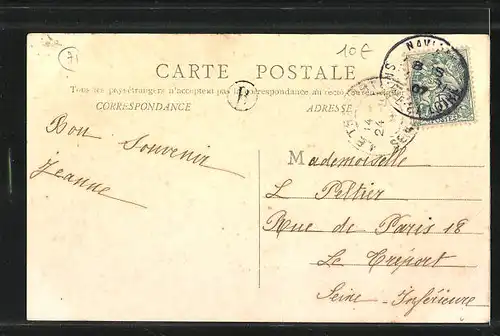 71
10 F
CARTE POSTALE
Tous les pays étrangers n'acceptent pas la correspondance au recto
CORRESPONDANCE
ADRESSE
B
NAVI
Bon Souvenir
Jeanne
Mademoiselle
L Peltier
Rue de Paris 18
Le Tréport
Seine-Inférieure